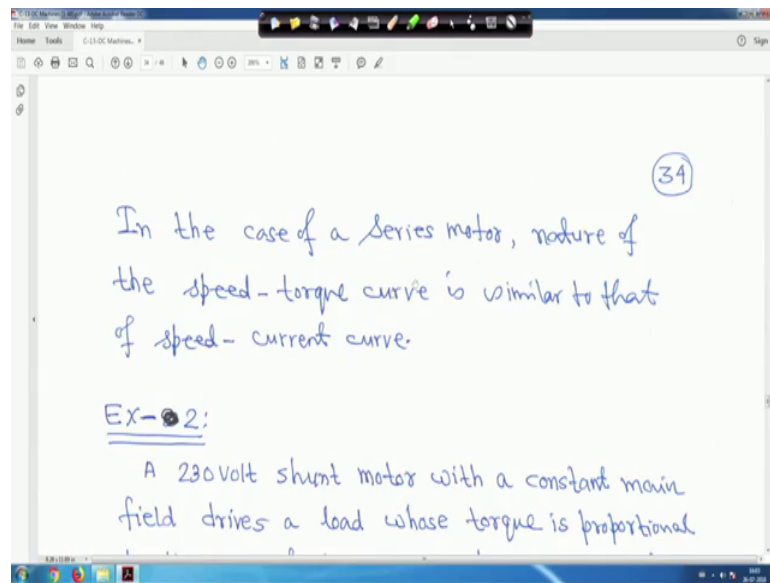 C-13-DC Machines (1-48).pdf - Adobe Acrobat Reader DC
File Edit View Window Help
Home Tools C-13-DC Machines... × Sign
34 / 48
34
In the case of a series motor, nature of
the speed-torque curve is similar to that
of speed-current curve.
Ex-2:
A 230 volt shunt motor with a constant main
field drives a load whose torque is proportional